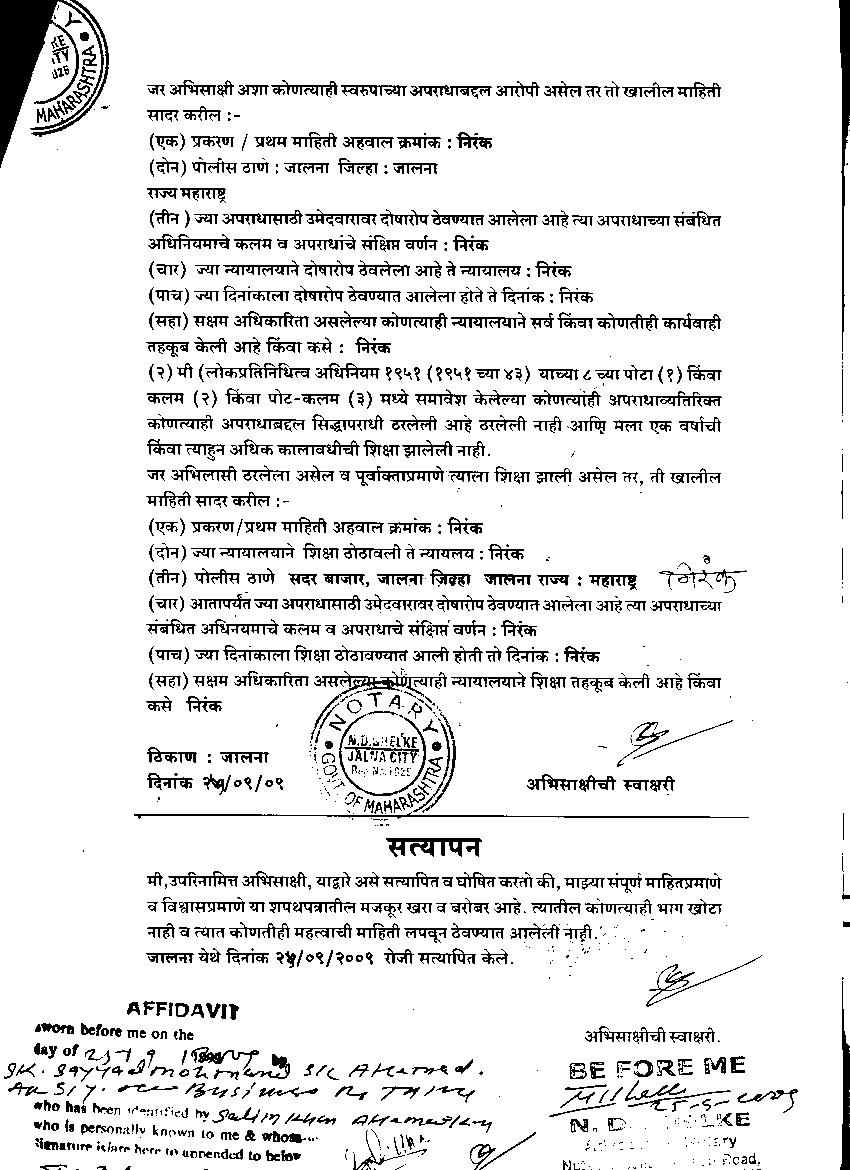 MAHARASHTRA
जर अभिसाक्षी अशा कोणत्याही स्वरुपाच्या अपराधाबद्दल आरोपी असेल तर तो खालील माहिती
सादर करील :-
(एक) प्रकरण / प्रथम माहिती अहवाल क्रमांक : निरंक
(दोन) पोलीस ठाणे : जालना जिल्हा : जालना
राज्य महाराष्ट्र
(तीन ) ज्या अपराधासाठी उमेदवारावर दोषारोप ठेवण्यात आलेला आहे त्या अपराधाच्या संबंधित
अधिनियमाचे कलम व अपराधांचे संक्षिप्त वर्णन : निरंक
(चार) ज्या न्यायालयाने दोषारोप ठेवलेला आहे ते न्यायालय : निरंक
(पाच) ज्या दिनांकाला दोषारोप ठेवण्यात आलेला होते ते दिनांक : निरंक
(सहा) सक्षम अधिकारिता असलेल्या कोणत्याही न्यायालयाने सर्व किंवा कोणतीही कार्यवाही
तहकूब केली आहे किंवा कसे : निरंक
(२) मी (लोकप्रतिनिधित्व अधिनियम १९५१ (१९५१ च्या ४३) याच्या ८ च्या पोटा (१) किंवा
कलम (२) किंवा पोट-कलम (३) मध्ये समावेश केलेल्या कोणत्यांही अपराधाव्यतिरिक्त
कोणत्याही अपराधाबद्दल सिद्धापराधी ठरलेली आहे ठरलेली नाही आणि मला एक वर्षाची
किंवा त्याहुन अधिक कालावधीची शिक्षा झालेली नाही.
जर अभिलासी ठरलेला असेल व पूर्वाक्ताप्रमाणे त्याला शिक्षा झाली असेल तर, ती खालील
माहिती सादर करील :-
(एक) प्रकरण/प्रथम माहिती अहवाल क्रमांक : निरंक
(दोन) ज्या न्यायालयाने शिक्षा ठोठावली ते न्यायलय : निरंक
(तीन) पोलीस ठाणे सदर बाजार, जालना ज़िल्हा जालना राज्य : महाराष्ट्र निरंक
(चार) आतापर्यंत ज्या अपराधासाठी उमेदवारावर दोषारोप ठेवण्यात आलेला आहे त्या अपराधाच्या
संबंधित अधिनयमाचे कलम व अपराधाचे संक्षिप्त वर्णन : निरंक
(पाच) ज्या दिनांकाला शिक्षा ठोठावण्यात आली होती तो दिनांक : निरंक
(सहा) सक्षम अधिकारिता असलेल्या कोणत्याही न्यायालयाने शिक्षा तहकूब केली आहे किंवा
कसे निरंक
NOTARY
N.D.SHELKE
JALNA CITY
GOVT. OF MAHARASHTRA
ठिकाण : जालना
दिनांक २५/०९/०९ अभिसाक्षीची स्वाक्षरी
सत्यापन
मी,उपरिनामित्त अभिसाक्षी, याद्वारे असे सत्यापित व घोषित करतो की, माझ्या संपूर्ण माहितप्रमाणे
व विश्वासप्रमाणे या शपथपत्रातील मजकूर खरा व बरोबर आहे. त्यातील कोणत्याही भाग खोटा
नाही व त्यात कोणतीही महत्वाची माहिती लपवून ठेवण्यात आलेली नाही.
जालना येथे दिनांक २५/०९/२००९ रोजी सत्यापित केले.
AFFIDAVIT
sworn before me on the अभिसाक्षीची स्वाक्षरी.
day of
BEFORE ME
Business
who has been identified by Salim Khan
who is personally known to me & whose
N. D. SHELKE
Signature is/are here to appended to below
Road,